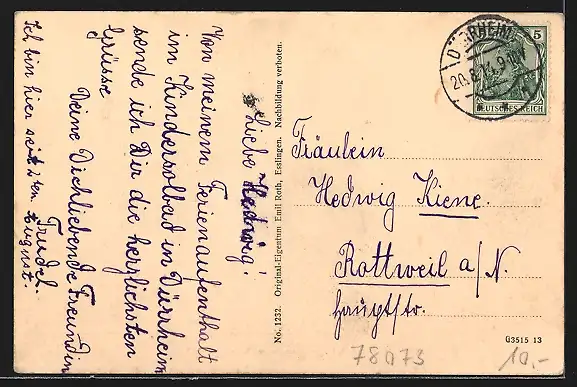 Liebe Hedwig!
Von meinem Ferienaufenthalt
im Kindersolbad in Dürrheim
sende ich Dir die herzlichsten
Grüsse
Deine Dichliebende Freundin
Trudel.
Ich bin hier seit 1ten August.
No. 1232. Original-Eigentum Emil Roth, Esslingen. Nachbildung verboten.
5
DEUTSCHES REICH
DÜRRHEIM
20.8.14.
Fräulein
Hedwig Kiene.
Rottweil a/N.
Hauptstr.
G3515 13
78073
10,-